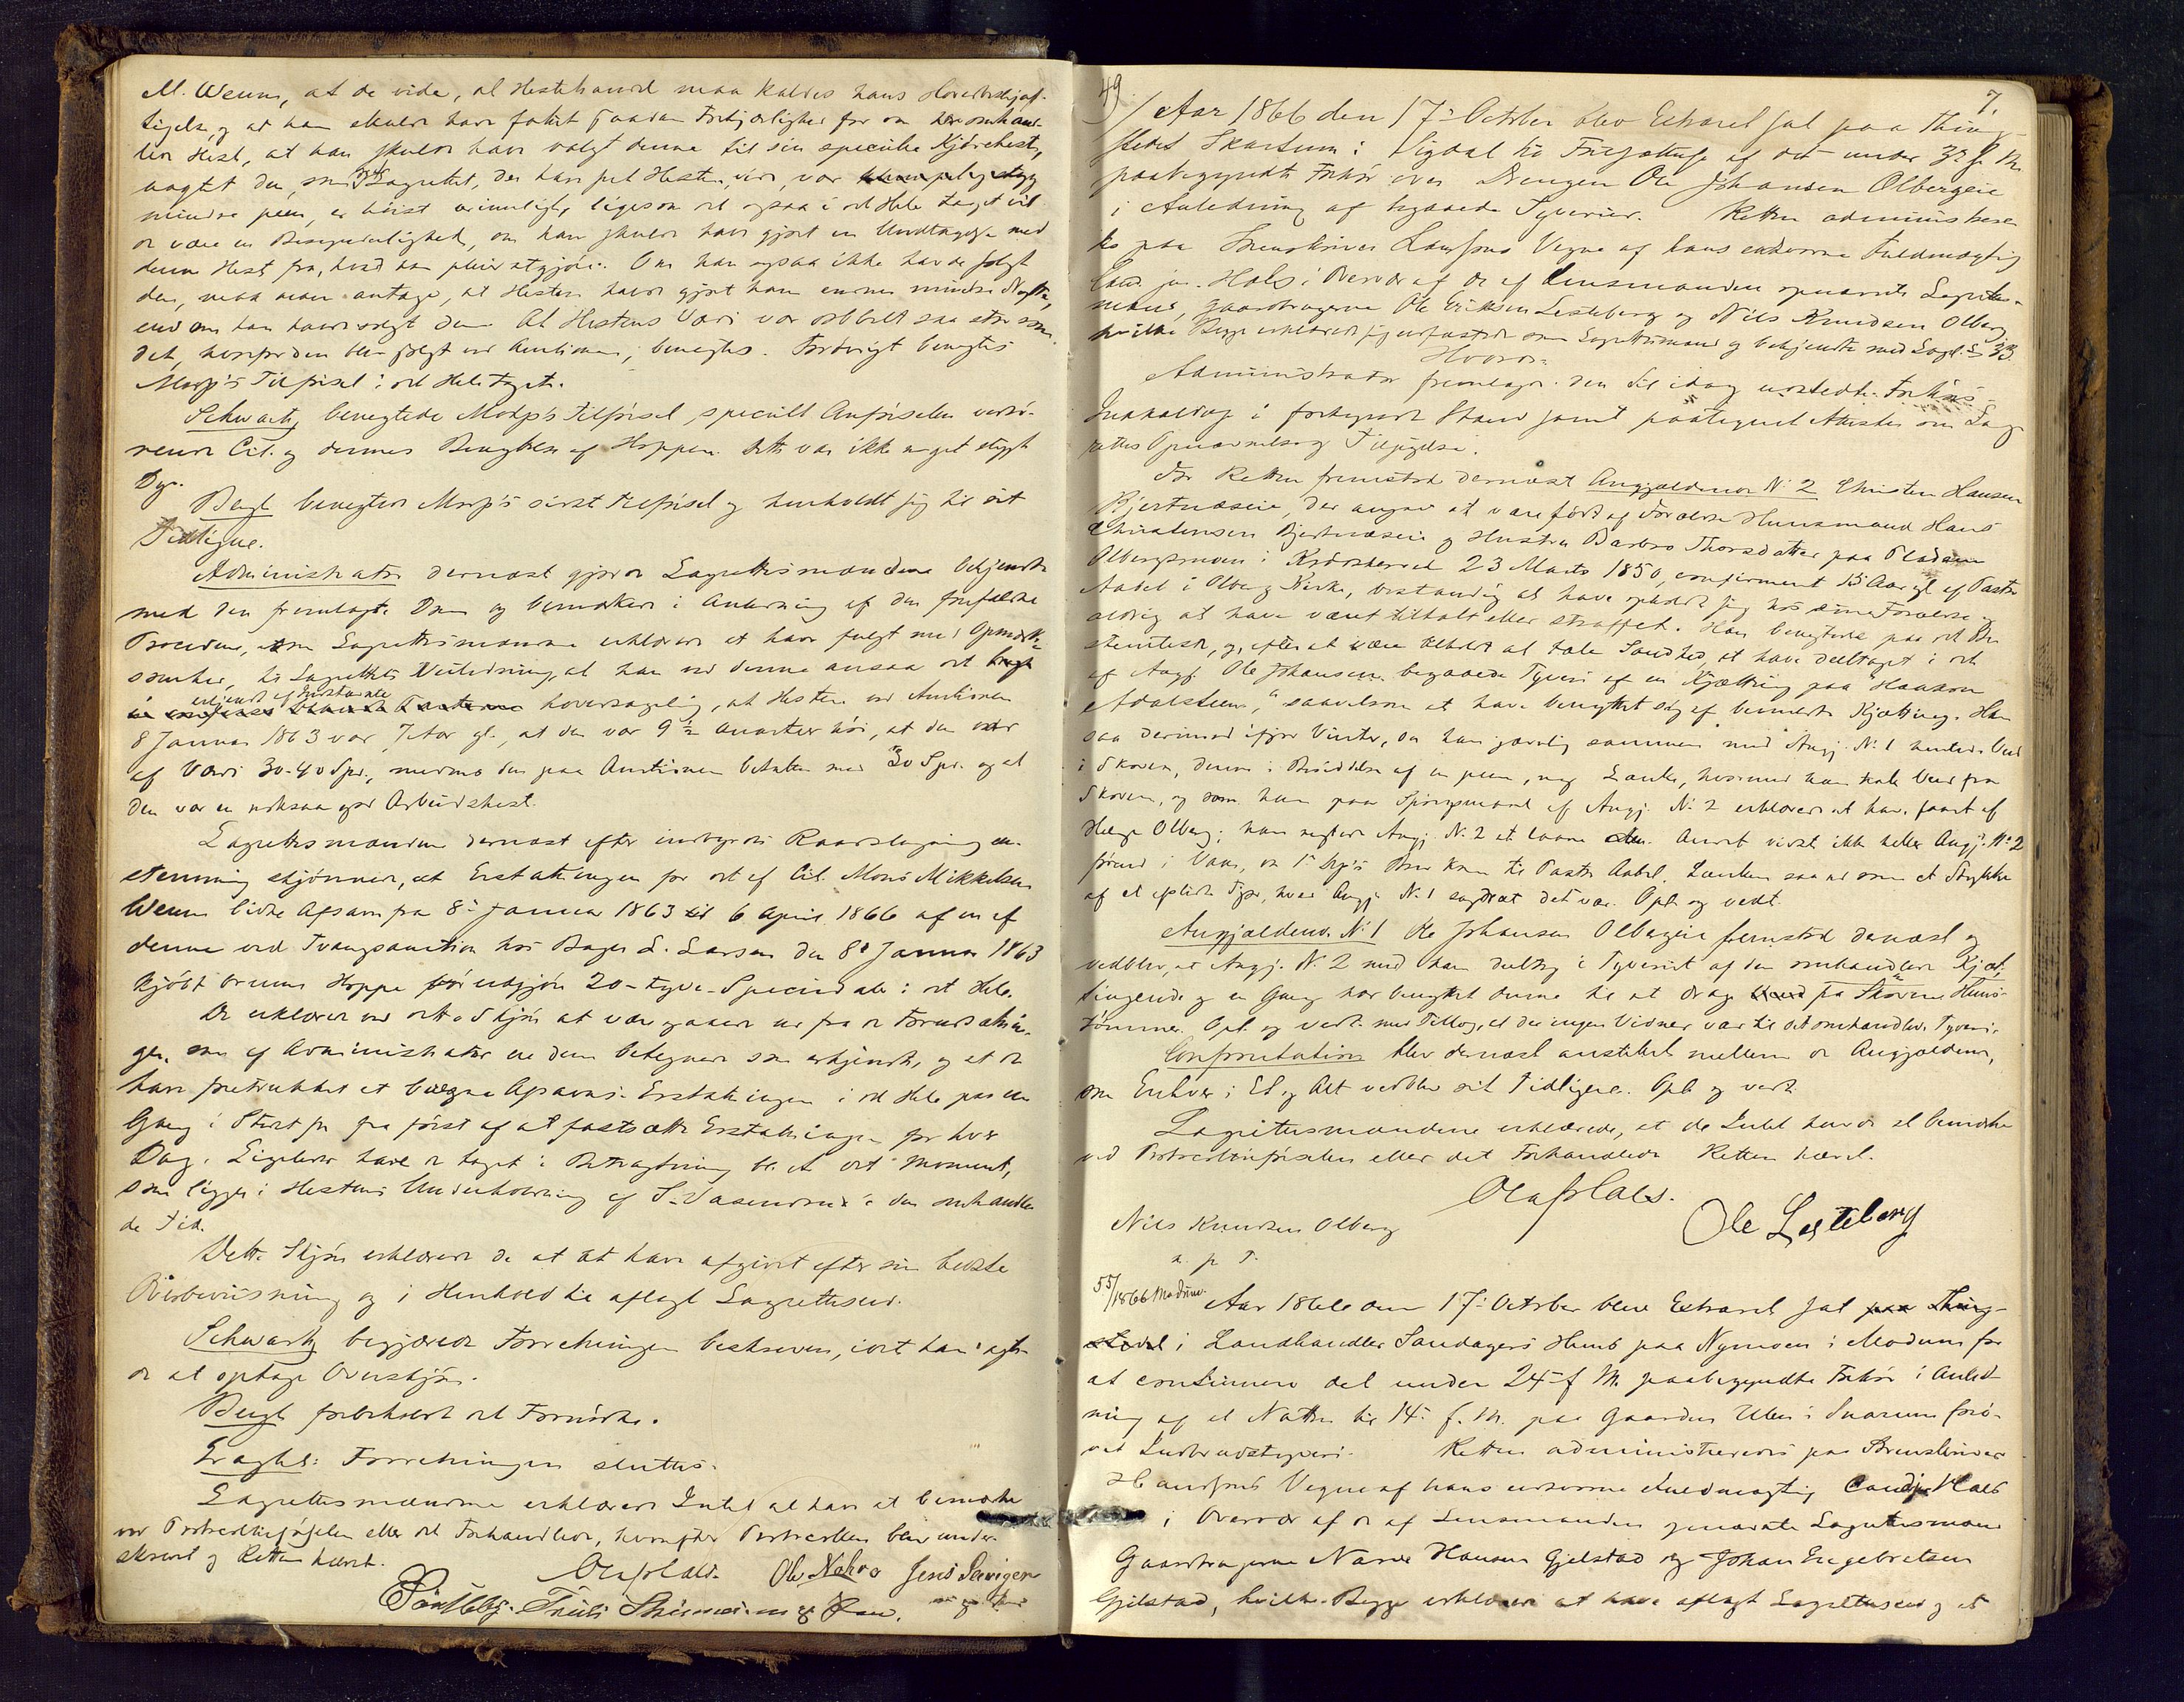 M. Weum, at de vide, at Hestehandel maa kaldes hans Hovedbeskjæf-
tigelse, og at han skulde have fattet saadan Forkjærlighed for en her omhand-
let Hest, at han skulde have valgt denne til sin specielle Kjørehest,
uagtet den, som Lagrettet, der har seet Hesten, vide, var
mindre pæn, er høist urimeligt, ligesom det ogsaa i det Hele taget vil-
de være en Besynderlighed, om han skulde have gjort en Undtagelse med
denne Hest fra, hvad han pleier at gjøre. Om han ogsaa ikke havde solgt
den, maa man antage, at Hesten havde gjort ham endnu mindre Nytte,
end om han havde solgt den. At Hestens Værdi var dobbelt saa stor som
det, hvorfor den blev solgt ved Auctionen, benegtes. Forøvrigt benegtes
Morp's Tilførsel i det Hele taget.
Schwartz benegtede Morp's Tilførsel, specielt Anførselen vedrø-
rende Cit. og dennes Benyttelse af Hoppen. Dette var ikke noget stygt
Dyr.
Bergh benegtede Morp's sidste Tilførsel og henholdt sig til sit
Tidligere.
Administrator dernæst gjorde Lagrettesmændene bekjendte
med den fremlagte Dom og bemærkede i Anledning af den forefaldne
Procedure, som Lagrettesmændene erklærede at have fulgt med Opmærk-
somhed, til Lagrettets Veiledning, at han ved denne ansaa det
erkjendt af Parterne hovedsagelig, at Hesten ved Auctionen
8 Januar 1863 var 7 Aar gl., at den var 9½ Quarter høi, at den var
af Værdi 30-40 Spd., medens den paa Auctionen betaltes med 30 Spd. og at
den var en noksaa god Arbeidshest.
Lagrettesmændene dernæst efter indbyrdes Raadslagning en-
stemmig skjønnede, at Erstatningen for det af Cit. Mons Mikkelsen
Weum lidte Afsavn fra 8de Januar 1863 til 6 April 1866 af en af
denne ved Tvangsauction hos Bager L. Larsen den 8de Januar 1863
kjøbt brun Hoppe bør udgjøre 20 - tyve - Speciedaler i det Hele.
De erklærede ved dette Skjøn at være gaaede ud fra de Forudsætnin-
ger, som af Administrator ere dem betegnede som erkjendte, og at de
have foretrukket at beregne Afsavns-Erstatningen i det Hele paa en
Gang i Stedet for fra først af at fastsætte Erstatningen for hver
Dag. Ligeledes have de taget i Betragtning bl. A. det Moment,
som ligger i Hestens Underholdning i den omhandle-
de Tid.
Dette Skjøn erklærede de at have afgivet efter sin bedste
Overbevisning og i Henhold til aflagt Lagretteseed.
Schwartz begjærede Forretningen beskreven, idet han agte-
de at optage Overskjøn.
Bergh forbeholdt det Fornødne.
Eragtet: Forretningen sluttes.
Lagrettesmændene erklærede Intet at have at bemærke
ved Protocoltilførselen eller det Forhandlede, hvorefter Protocollen blev under-
skrevet og Retten hævet.
Olaf Hals. Ole Nokva
49
7.
Aar 1866 den 17de October blev Extraret sat paa Thing-
stedet Skartum i Sigdal til Fortsættelse af det under 3die f. M.
paabegyndte Forhør over Drengen Ole Johansen Olbergeie
i Anledning af begaaede Tyverier. Retten administrere-
des paa Sorenskriver Vegne af hans edsvorne Fuldmægtig
Cand. jur. Hals i Overvær af de af Lensmanden opnævnte Lagrettes-
mænd, Gaardbrugerne Ole Eriksen Lesteberg og Nils Knudsen Olberg,
hvilke Begge erklærede sig eedfæstede som Lagrettesmænd og bekjendte med Lagl. § 33.
Hvorda:
Administrator fremlagde den til idag udstedte Forhørs-
Indkaldelse i forkyndt Stand samt paategnet Attester om Lag-
rettes Opnævnelse og Tilsigelse.
For Retten fremstod dernæst Angjældende No 2 Christen Hansen
Bjertnæseie, der angav at være født af Forældre Huusmand Hans
Christensen Bjertnæseie og Hustru Barbro Thorsdatter paa Pladsen
Olbergsmoen i Krødsherred 23 Marts 1850, confirmeret 15 Aar gl. af Pastor
Aabel i Olberg Kirke, bestandig at have opholdt sig hos sine Forældre og
aldrig at have været tiltalt eller straffet. Han benegtede paa det Be-
stemteste, og, efter at være tilholdt at tale Sandhed, at have deeltaget i det
af Angj. Ole Johansen begaaede Tyveri af en Kjætting paa "Haakon
Adalsteen," saavelsom at have benyttet sig af bemeldte Kjætting. Han
saa derimod ifjor Vinter, da han jævnlig sammen med Angj. No 1 hentede Ved
i Skoven, denne i Besiddelse af en pæn, ny Lænke, hvormed han trak Ved fra
Skoven, og som han paa Spørgsmaal af Angj. No 2 erklærede at have faaet af
Helge Olberg; han negtede Angj. No 2 at laane den. Andet vidste ikke heller Angj. No 2
Lænken saa ud som et Stykke
af et Tøir, hvad Angj. No 1 sagde at det var. Opl. og vedt.
Angjældende No 1 Ole Johansen Olbergeie fremstod dernæst og
vedblev, at Angj. No 2 med ham deeltog i Tyveriet af den omhandlede Kjæt-
ting og en Gang har benyttet denne til at drage fra Skoven Huus-
tømmer. Opl. og vedt. med Tillæg, at der ingen Vidner var til det omhandlede Tyveri.
Confrontation blev dernæst anstillet mellem de Angjældende,
som Enhver i Et og Alt vedblev sit Tidligere. Opl. og vedt.
Lagrettesmændene erklærede, at de Intet havde at bemærke
ved Protocoltilførselen eller det Forhandlede. Retten hævet.
Olaf Hals.
Ole Lesteberg
Nils Knudsen Olberg
m. p. P.
55/1866 Modum.
Aar 1866 den 17de October blev Extraret sat paa Thing-
stedet i Landhandler Sandagers Huus paa Nymoen i Modum for
at continuere det under 24de f. M. paabegyndte Forhør i Anled-
ning af et Natten til 14de f. M. paa Gaarden Ulen i Snarum prø-
vet Indbrudstyveri. Retten administreredes paa Sorenskriver
Vegne af hans edsvorne Fuldmægtig Cand. jur. Hals
i Overvær af de af Lensmanden opnævnte Lagrettesmænd
Gaardbrugerne Narve Hansen Gjelstad og Johan Engebretsen
Gjelstad, hvilke Begge erklærede at have aflagt Lagretteseed og at